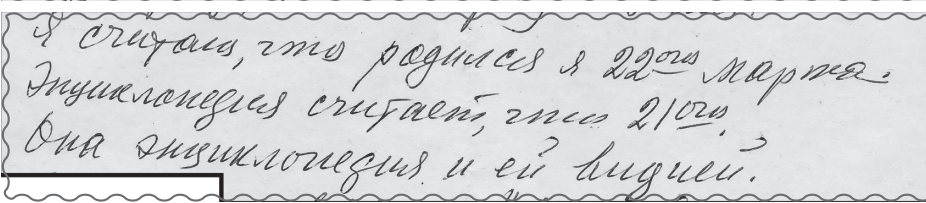 Я считаю, что родился я 22ого марта.
Энциклопедия считает, что 21ого.
Она энциклопедия и ей видней.